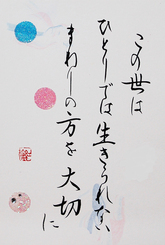 この世は
ひとりでは生きられない
まわりの方を大切に